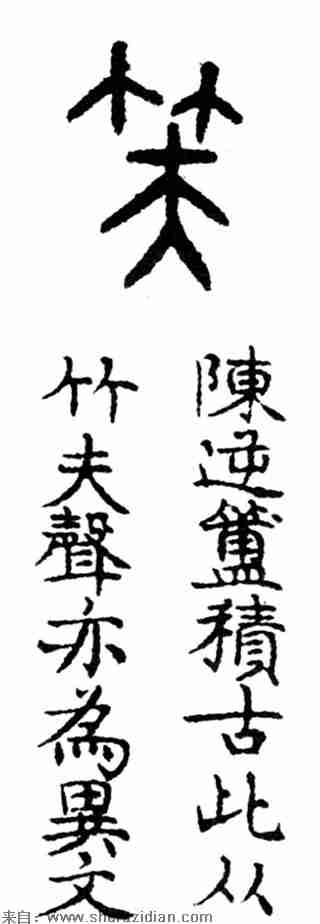 𥬙
陳逆簠積古此从
竹夫聲亦為異文
来自：www.shufazidian.com